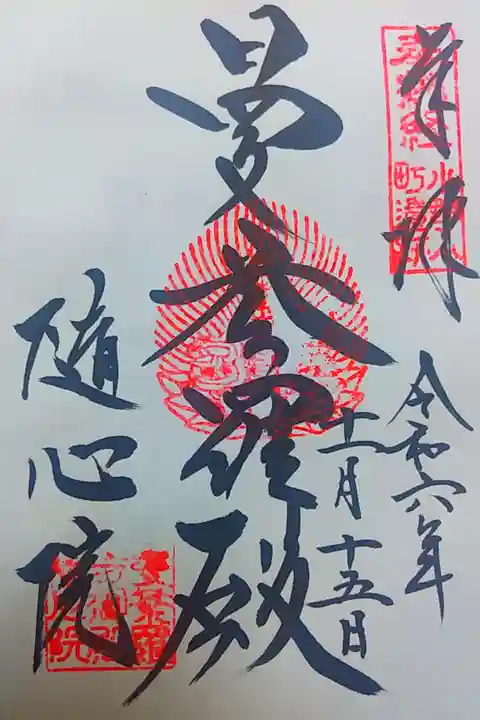 奉拝
令和六年
十一月十五日
曼荼羅殿
随心院